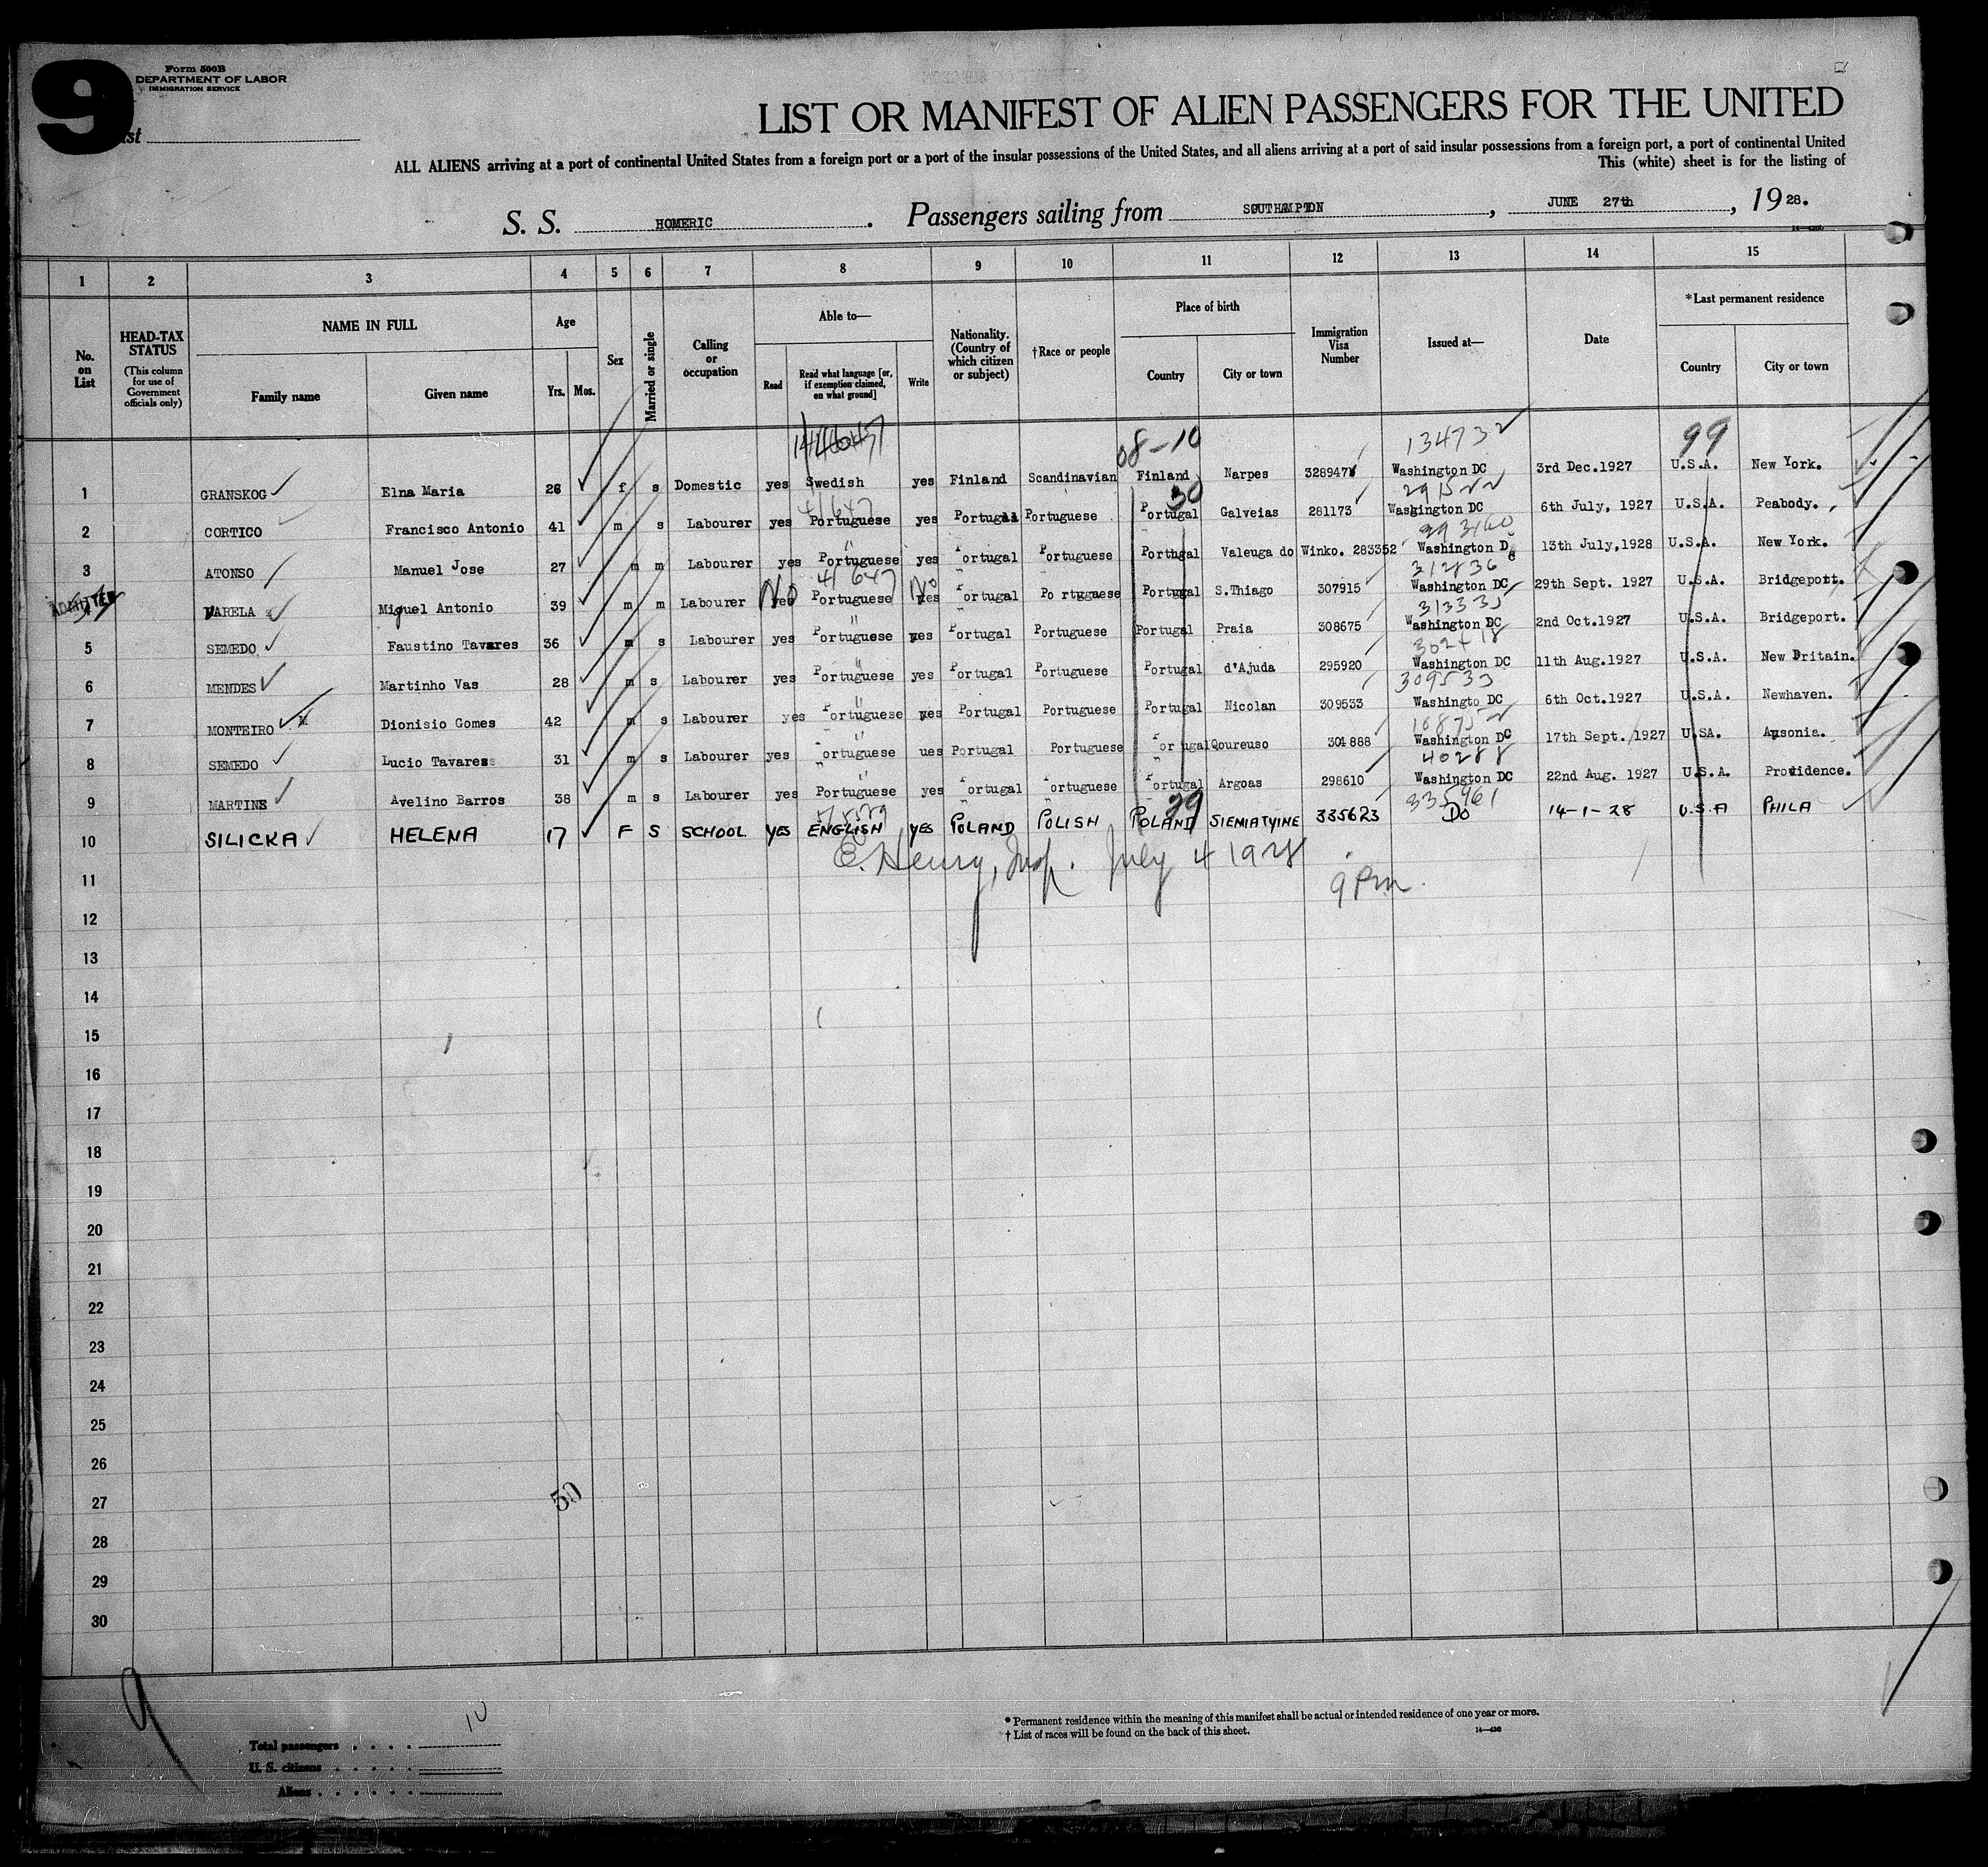 9
Form 500B
DEPARTMENT OF LABOR
IMMIGRATION SERVICE
LIST OR MANIFEST OF ALIEN PASSENGERS FOR THE UNITED
ALL ALIENS arriving at a port of continental United States from a foreign port or a port of the insular possessions of the United States, and all aliens arriving at a port of said insular possessions from a foreign port, a port of continental United
This (white) sheet is for the listing of
S. S. HOMERIC. Passengers sailing from SOUTHAMPTON, JUNE 27th, 1928.
1 2 3 4 5 6 7 8 9 10 11 12 13 14 15
No. on List
HEAD-TAX STATUS
(This column for use of Government officials only)
NAME IN FULL
Family name Given name
Age
Yrs. Mos.
Sex
Married or single
Calling or occupation
Able to—
Read Read what language [or, if exemption claimed, on what ground] Write
Nationality. (Country of which citizen or subject)
†Race or people
Place of birth
Country City or town
Immigration Visa Number
Issued at—
Date
*Last permanent residence
Country City or town
08-10 134732 99
1 GRANSKOG Elna Maria 26 f s Domestic yes Swedish yes Finland Scandinavian Finland Narpes Washington DC 3rd Dec.1927 U.S.A. New York.
41647 30
2 CORTICO Francisco Antonio 41 m s Labourer yes Portuguese yes Portugal Portuguese Portugal Galveias 281173 Washington DC 6th July, 1927 U.S.A. Peabody.
3 ATONSO Manuel Jose 27 m m Labourer yes Portuguese yes Portugal Portuguese Portugal Valeuga do Winko. 283352 Washington DC 13th July,1928 U.S.A. New York.
ADMITTED No 41647 No 312836
4 VARELA Miguel Antonio 39 m m Labourer yes Portuguese yes Portugal Portuguese Portugal S.Thiago 307915 Washington DC 29th Sept. 1927 U.S.A. Bridgeport.
5 SEMEDO Faustino Tavares 36 m s Labourer yes Portuguese yes Portugal Portuguese Portugal Praia 308675 Washington DC 2nd Oct.1927 U.S.A. Bridgeport.
302418
6 MENDES Martinho Vas 28 m s Labourer yes Portuguese yes Portugal Portuguese Portugal d'Ajuda 295920 Washington DC 11th Aug.1927 U.S.A. New Britain.
309533
7 MONTEIRO Dionisio Gomes 42 m s Labourer yes Portuguese yes Portugal Portuguese Portugal Nicolan 309533 Washingto DC 6th Oct.1927 U.S.A. Newhaven.
8 SEMEDO Lucio Tavares 31 m s Labourer yes Portuguese ues Portugal Portuguese Portugal Qoureuso 301888 Washington DC 17th Sept. 1927 U.SA. Ansonia.
40288
9 MARTINS Avelino Barros 38 m s Labourer yes Portuguese yes Portugal Portuguese Portugal Argoas 298610 Washington DC 22nd Aug. 1927 U.S.A. Providence.
29 335961
10 SILICKA HELENA 17 F S SCHOOL YES ENGLISH YES POLAND POLISH POLAND SIEMIATYINE 335623 Do 14-1-28 U.S.A PHILA
E. Henry, Insp. July 4 1928
9 Pm.
11
12
13
14
15
16
17
18
19
20
21
22
23
24
25
26
27
50
28
29
30
9
10
Total passengers
U. S. citizens
Aliens
* Permanent residence within the meaning of this manifest shall be actual or intended residence of one year or more.
† List of races will be found on the back of this sheet.
14—430